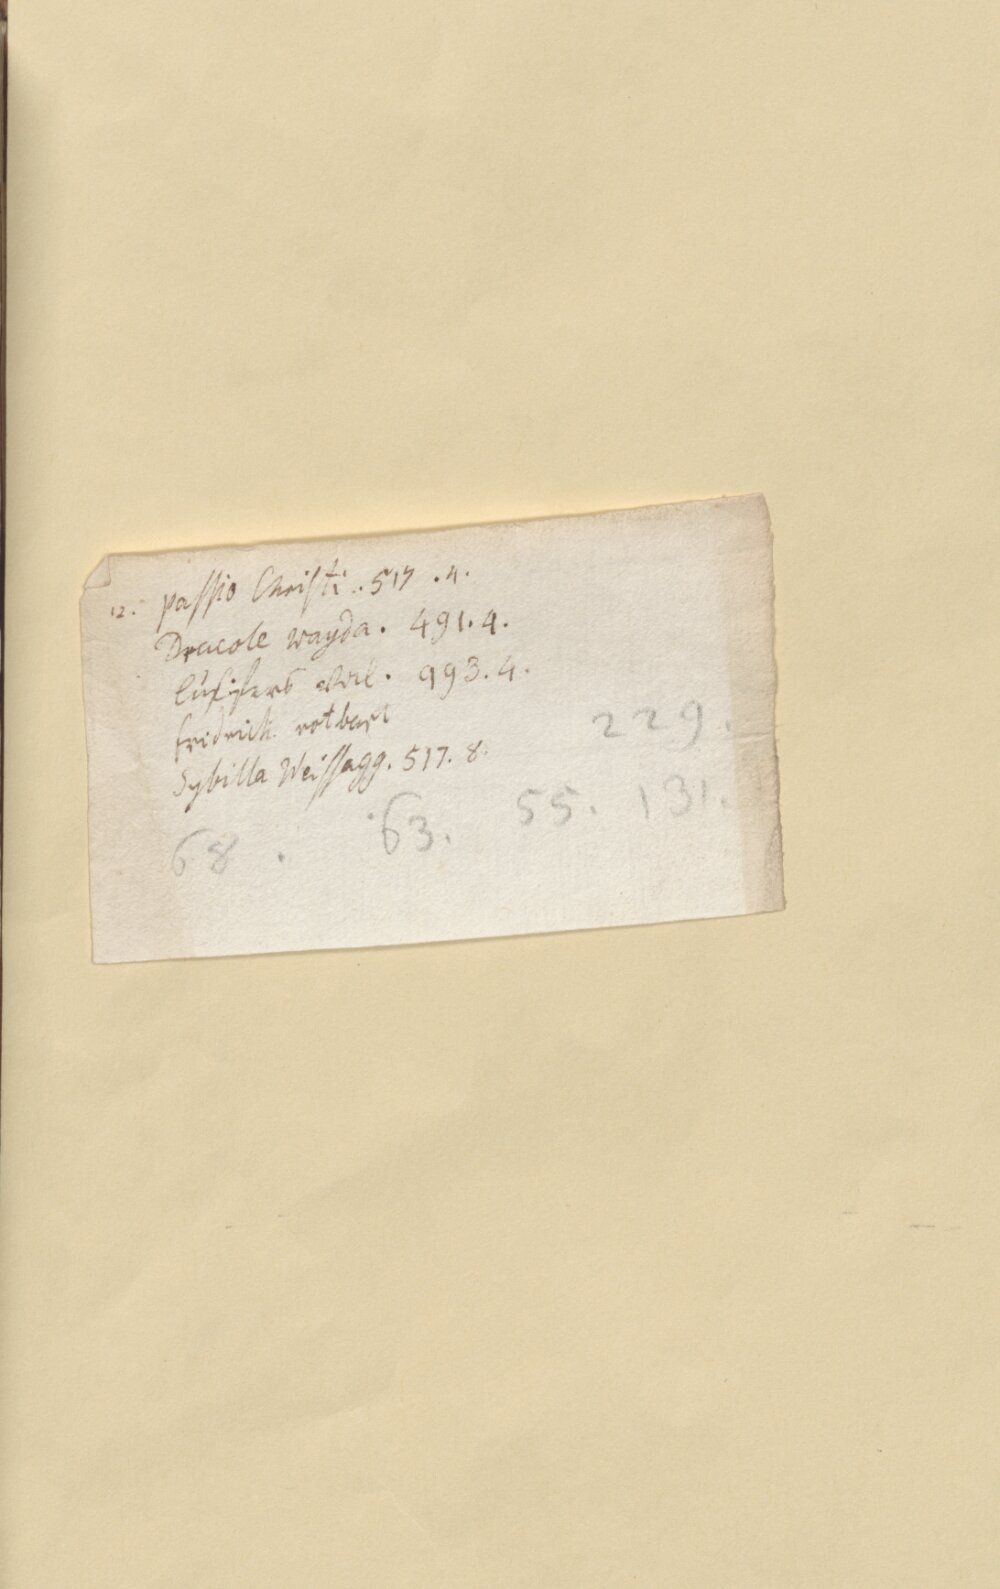 12. passio Christi. 517.4.
Dracole wayda. 491.4.
Lucifers 993.4.
fridrich rotbart
Sybilla Weissagg. 517.8.
229.
68. 63. 55. 131.